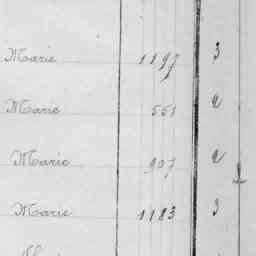 Marie 1197 3
Marie 551 2
Marie 907 2
Marie 1183 3